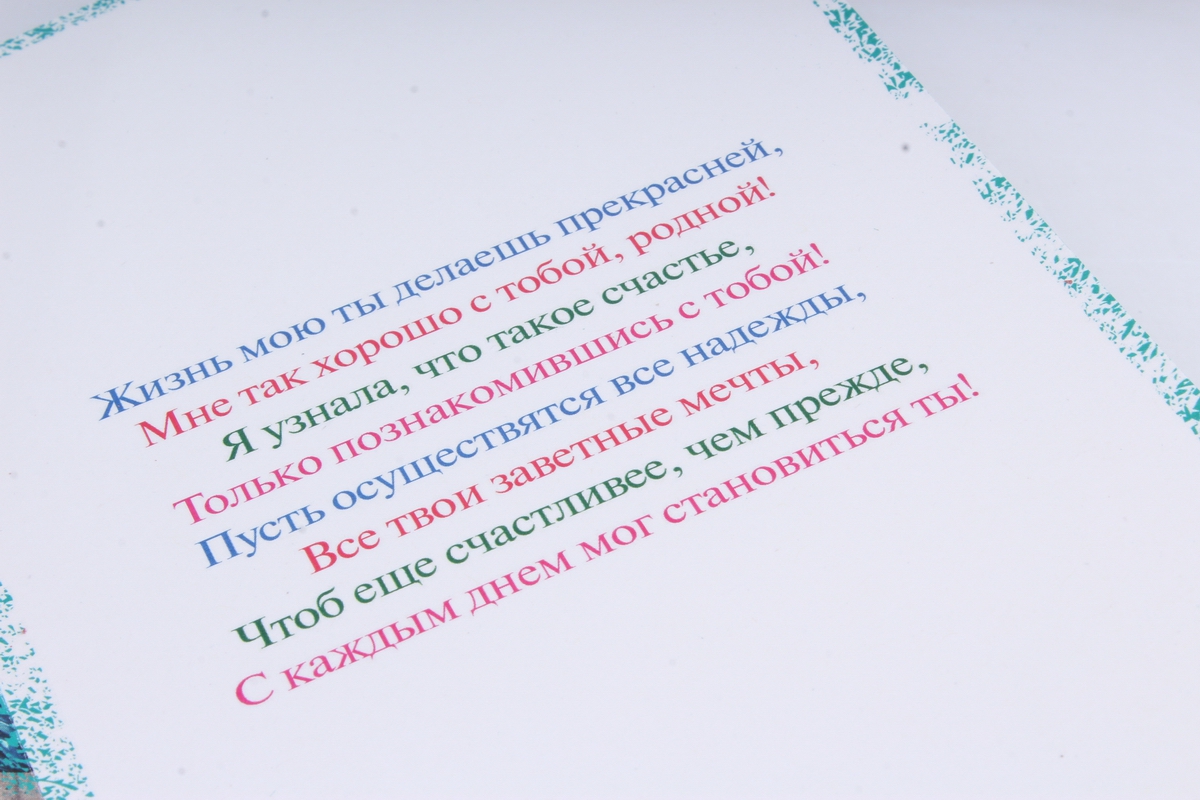 Жизнь мою ты делаешь прекрасней,
Мне так хорошо с тобой, родной!
Я узнала, что такое счастье,
Только познакомившись с тобой!
Пусть осуществятся все надежды,
Все твои заветные мечты,
Чтоб еще счастливее, чем прежде,
С каждым днем мог становиться ты!